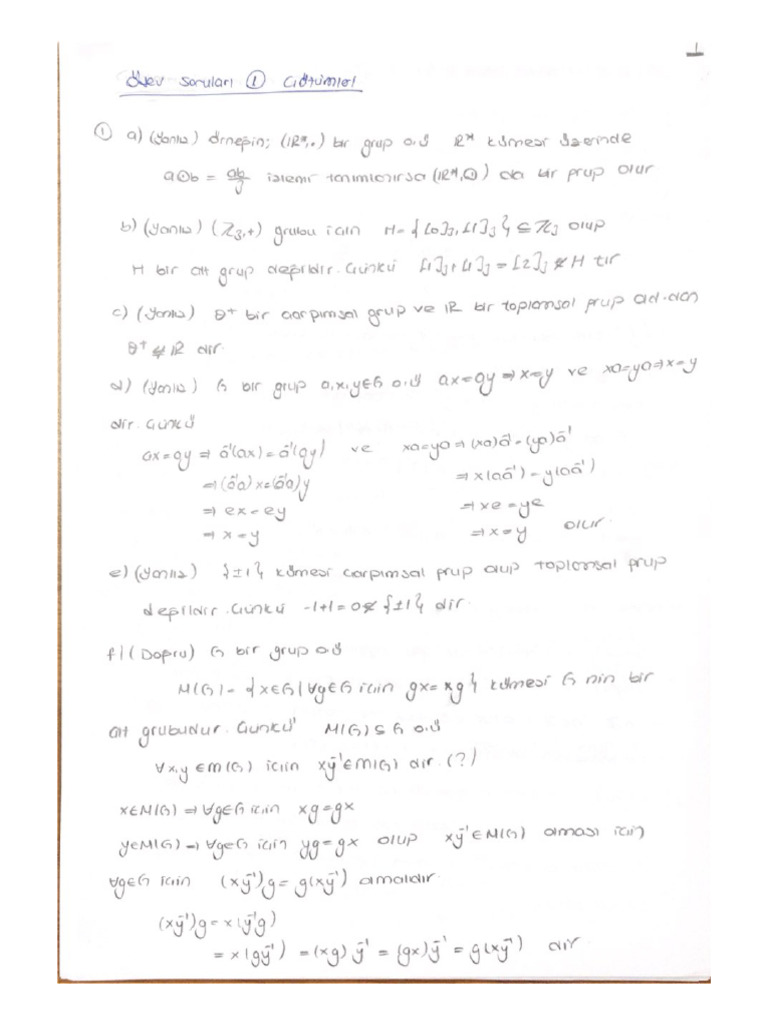 1
Ödev Soruları ① Çözümleri
① a) (Yanlış) Örneğin; (ℝ*,·) bir grup o.ü ℝ* kümesi üzerinde
a⊙b = ab/7 işlemi tanımlanırsa (ℝ*,⊙) da bir grup olur
b) (Yanlış) (ℤ₃,+) grubu için H={[0]₃,[1]₃} ⊆ ℤ₃ olup
H bir alt grup değildir. Çünkü [1]₃+[1]₃=[2]₃ ∉ H tır
c) (Yanlış) Q⁺ bir çarpımsal grup ve ℝ bir toplamsal grup old.dan
Q⁺ ≰ ℝ dir.
d) (Yanlış) G bir grup a,x,y∈G o.ü ax=ay ⇒ x=y ve xa=ya ⇒ x=y
dir. Çünkü
ax=ay ⇒ a⁻¹(ax)=a⁻¹(ay) ve xa=ya ⇒ (xa)a⁻¹=(ya)a⁻¹
⇒ (a⁻¹a)x=(a⁻¹a)y ⇒ x(aa⁻¹)=y(aa⁻¹)
⇒ ex=ey ⇒ xe=ye
⇒ x=y ⇒ x=y olur.
e) (Yanlış) {±1} kümesi çarpımsal grup olup toplamsal grup
değildir. Çünkü -1+1=0∉{±1} dir.
f) (Doğru) G bir grup o.ü
M(G)={x∈G|∀g∈G için gx=xg} kümesi G nin bir
alt grubudur. Çünkü M(G)⊆G o.ü
∀x,y∈M(G) için xy⁻¹∈M(G) dir. (?)
x∈M(G) ⇒ ∀g∈G için xg=gx
y∈M(G) ⇒ ∀g∈G için yg=gx olup xy⁻¹∈M(G) olması için
∀g∈G için (xy⁻¹)g=g(xy⁻¹) olmalıdır.
(xy⁻¹)g=x(y⁻¹g)
=x(gy⁻¹)=(xg)y⁻¹=(gx)y⁻¹=g(xy⁻¹) dir.